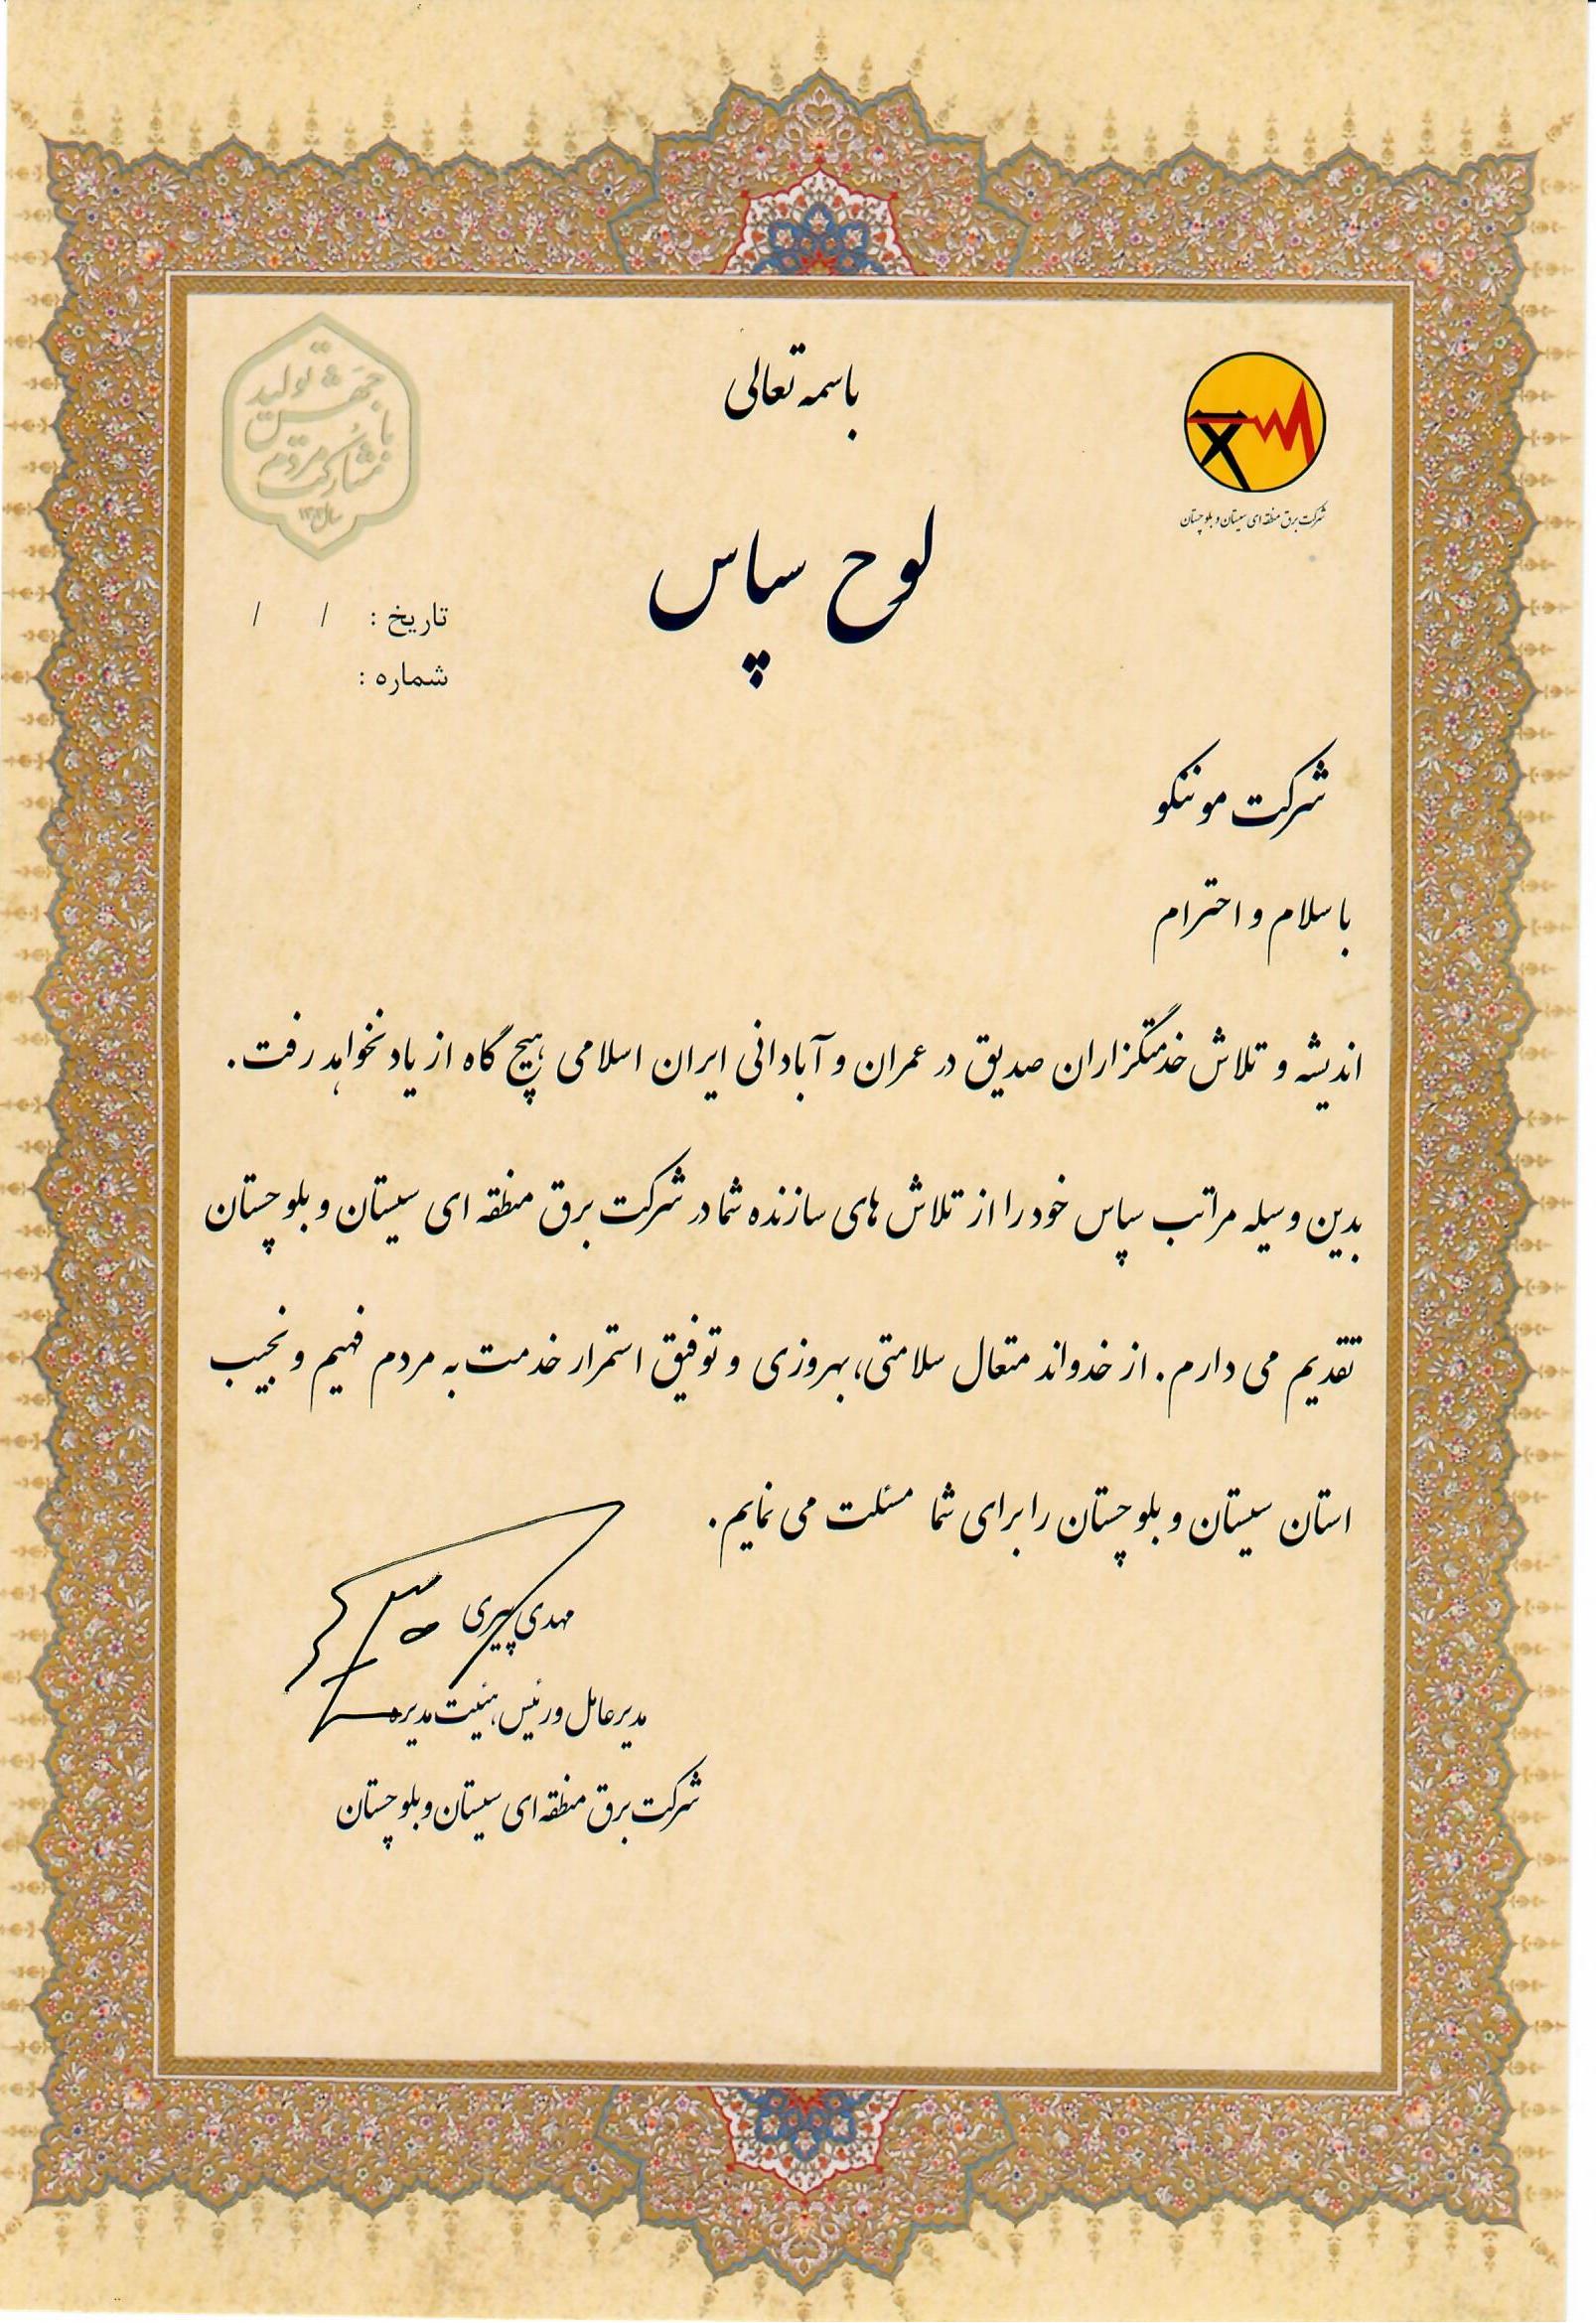 باسمه تعالی
جهش تولید
با مشارکت مردم
سال ۱۴۰۳
شرکت برق منطقه ای سیستان و بلوچستان
لوح سپاس
تاریخ : / /
شماره :
شرکت موننکو
با سلام و احترام
اندیشه و تلاش خدمتگزاران صدیق در عمران و آبادانی ایران اسلامی هیچ گاه از یاد نخواهد رفت.
بدین وسیله مراتب سپاس خود را از تلاش های سازنده شما در شرکت برق منطقه ای سیستان و بلوچستان
تقدیم می دارم. از خدواند متعال سلامتی، بهروزی و توفیق استمرار خدمت به مردم فهیم و نجیب
استان سیستان و بلوچستان را برای شما مسئلت می نمایم.
مهدی پیری
مدیرعامل و رئیس هیئت مدیره
شرکت برق منطقه ای سیستان و بلوچستان